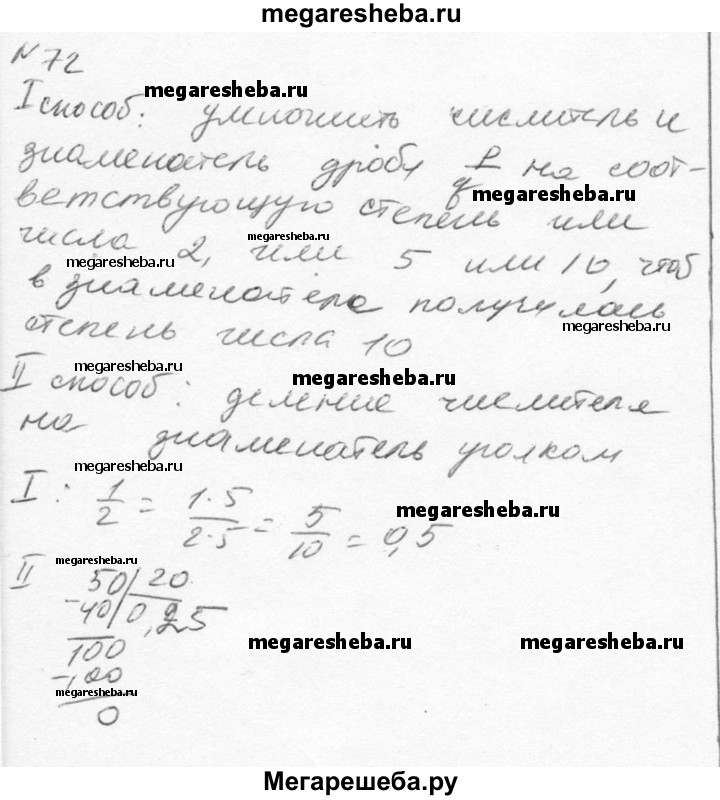 megaresheba.ru
N 72
megaresheba.ru
I способ: умножить числитель и
знаменатель дроби p/q на соот-
megaresheba.ru
ветствующую степень или
megaresheba.ru
числа 2, или 5 или 10, чтоб
megaresheba.ru
в знаменателе получилась
megaresheba.ru
степень числа 10
megaresheba.ru
megaresheba.ru
II способ: деление числителя
на знаменатель уголком
megaresheba.ru
I: 1/2 = 1·5/2·5 = 5/10 = 0,5
megaresheba.ru
megaresheba.ru
II 50 | 20
-40 | 0,25
100
megaresheba.ru
megaresheba.ru
-100
megaresheba.ru
0
Мегарешеба.ру